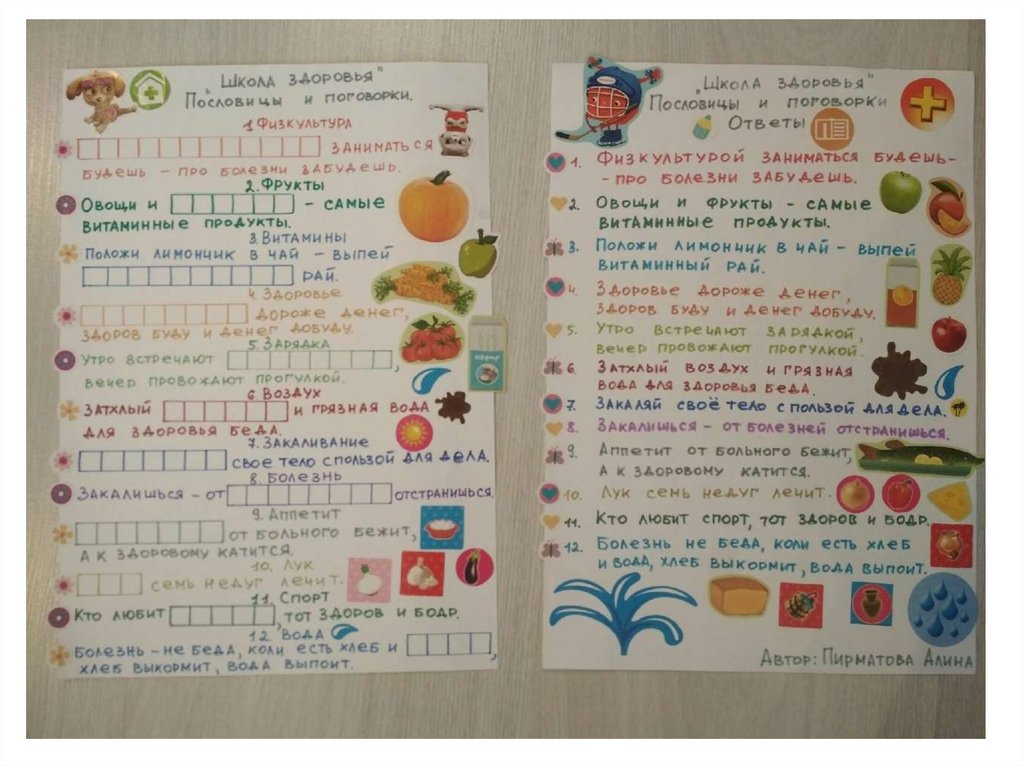 „Школа здоровья"
Пословицы и поговорки.
1 Физкультура
заниматься
будешь - про болезни забудешь.
2. Фрукты
Овощи и - самые
витаминные продукты.
3. Витамины
Положи лимончик в чай - выпей
рай.
4. Здоровье
дороже денег,
здоров буду и денег добуду.
5. Зарядка
Утро встречают ,
вечер провожают прогулкой.
6 Воздух
Затхлый и грязная вода
для здоровья беда.
7. Закаливание
свое тело с пользой для дела.
8. Болезнь
Закалишься - от отстранишься.
9. Аппетит
от больного бежит,
а к здоровому катится.
10. Лук
семь недуг лечит.
11. Спорт
Кто любит , тот здоров и бодр.
12. Вода
Болезнь - не беда, коли есть хлеб и ,
хлеб выкормит, вода выпоит.
„Школа здоровья"
Пословицы и поговорки
Ответы
1. Физкультурой заниматься будешь-
- про болезни забудешь.
2. Овощи и фрукты - самые
витаминные продукты.
3. Положи лимончик в чай - выпей
витаминный рай.
4. Здоровье дороже денег,
здоров буду и денег добуду.
5. Утро встречают зарядкой,
вечер провожают прогулкой.
6. Затхлый воздух и грязная
вода для здоровья беда.
7. Закаляй своё тело с пользой для дела.
8. Закалишься - от болезней отстранишься.
9. Аппетит от больного бежит,
а к здоровому катится.
10. Лук семь недуг лечит.
11. Кто любит спорт, тот здоров и бодр.
12. Болезнь не беда, коли есть хлеб
и вода, хлеб выкормит, вода выпоит.
Автор: Пирматова Алина